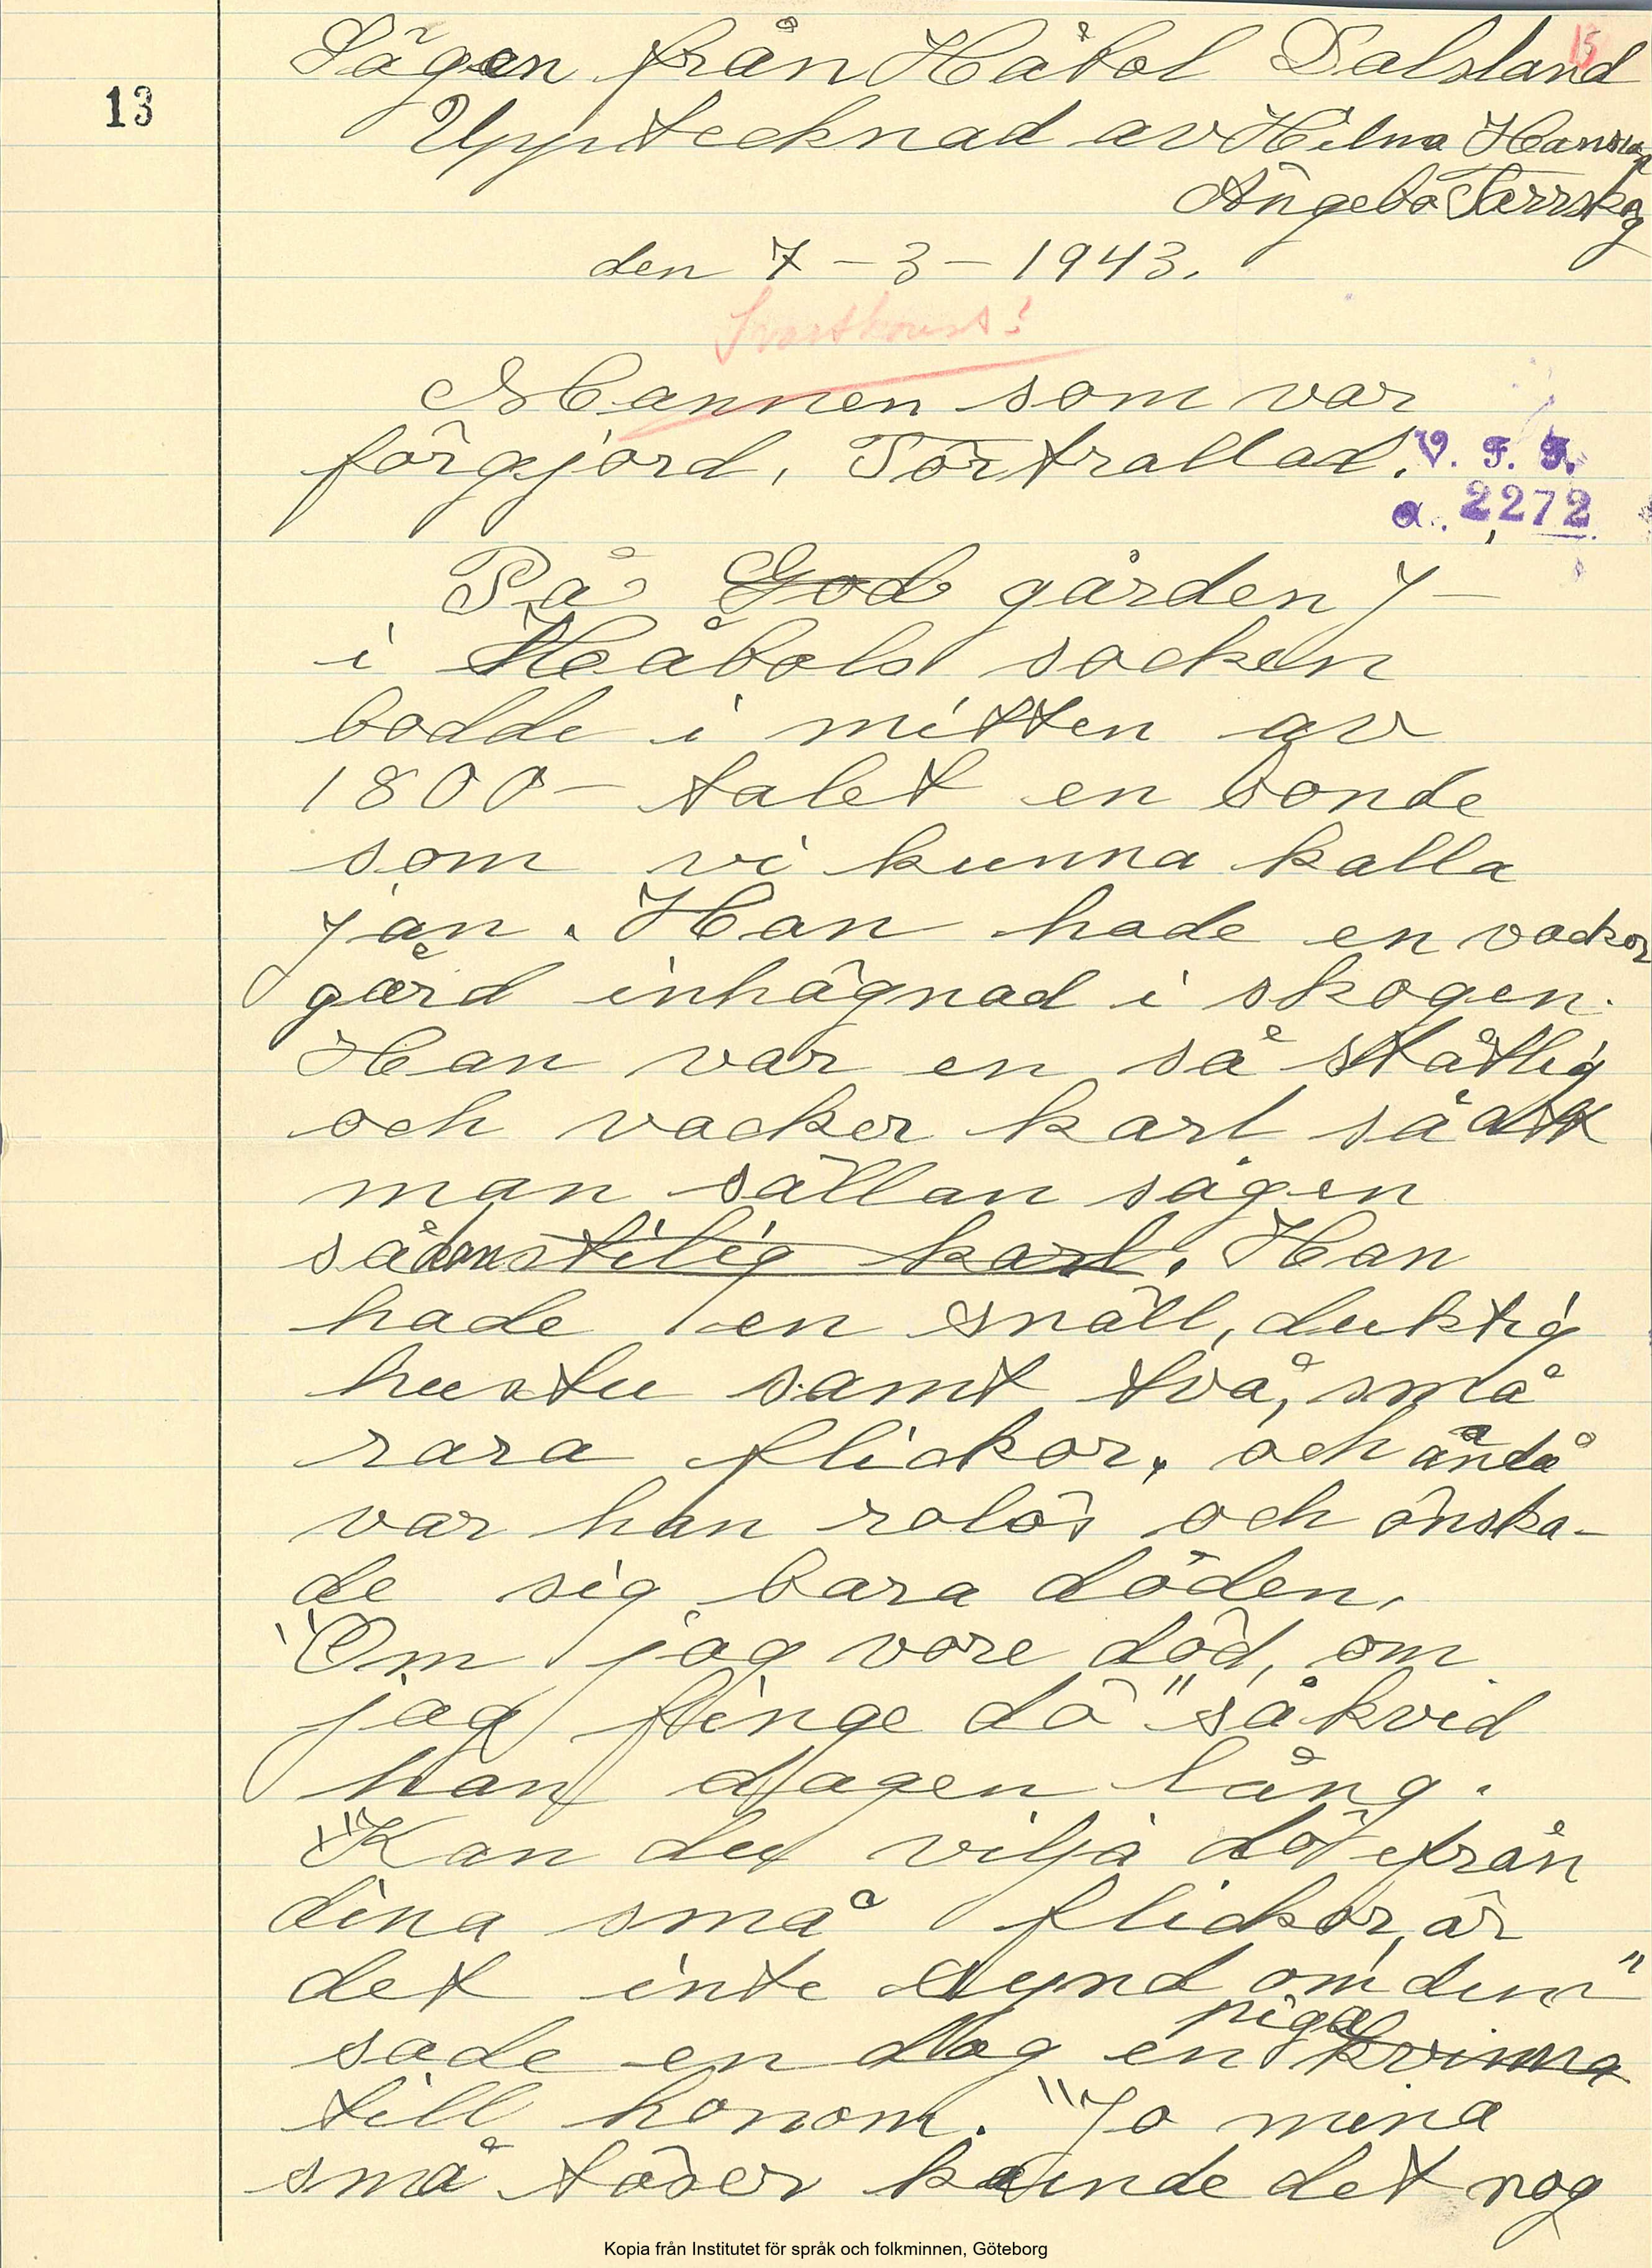 Sägen från Håbol Dalsland
15
13
Upptecknad av Hilma Hansson
Ängebo Tärrskog
den 7-3-1943.
Svartkonst!
Mannen som var
förgjord, Förtrollad.
V. F. F.
a. 2272
På God gården J-
i Håbols socken
bodde i mitten av
1800-talet en bonde
som vi kunna kalla
Jan. Han hade en vacker
gård inhägnad i skogen.
Han var en så ståtlig
och vacker karl så att
man sällan sågen
sådan stilig karl. Han
hade en snäll, duktig
hustu samt två, små
rara flickor, och ändå
var han rolös och önska-
de sig bara döden,
"Om jag vore död, om
jag finge dö" så kvid
han dagen lång.
"Kan du vilja dö ifrån
dina små flickor, är
det inte synd om dem"
sade en dag en piga kvinna
till honom. "Jo mina
små töser kunde det nog
Kopia från Institutet för språk och folkminnen, Göteborg